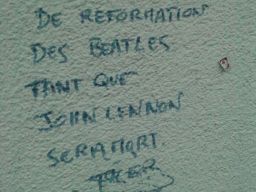 DE REFORMATION
DES BEATLES
TANT QUE
JOHN LENNON
SERA MORT